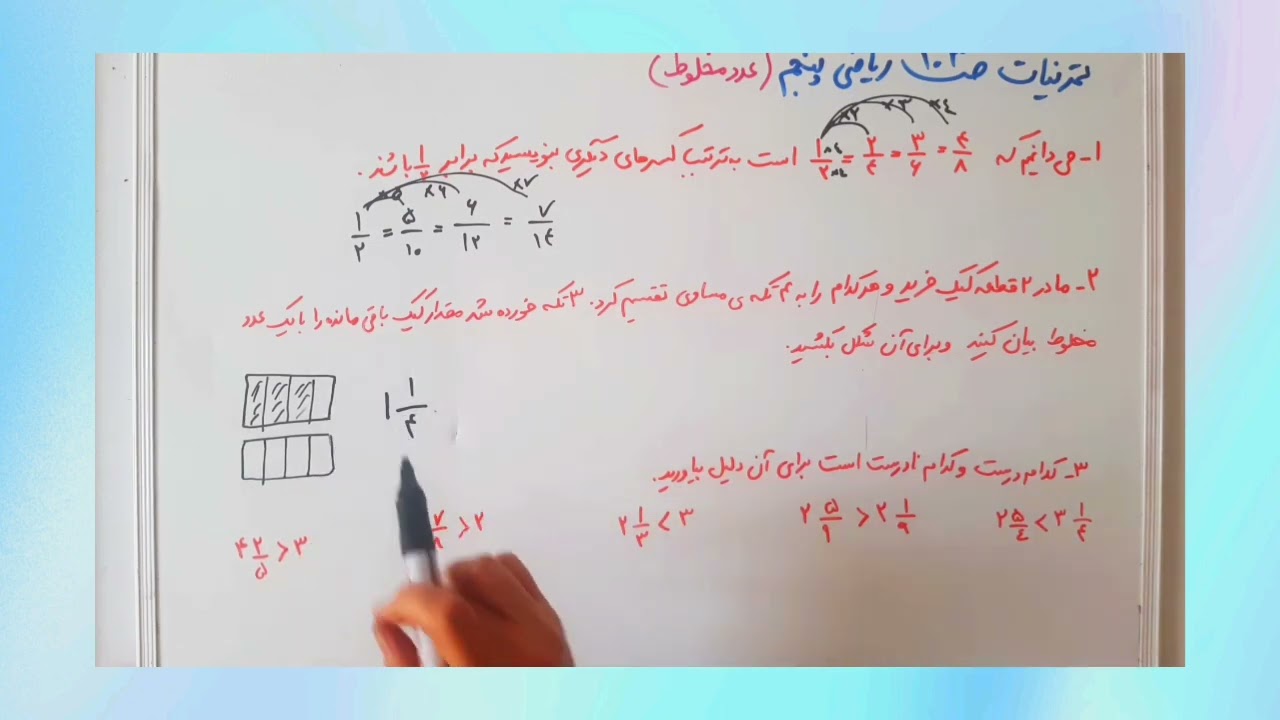 تمرینات صفحه ریاضی پنجم (عدد مخلوط)
×۲ ×۳ ×۴
۱- می دانیم که ۱/۲ = ۲/۴ = ۳/۶ = ۴/۸ است به ترتیب کسرهای دیگری بنویسید که برابر ۱/۲ باشند.
×۵ ×۶ ×۷
۱/۲ = ۵/۱۰ = ۶/۱۲ = ۷/۱۴
۲- مادر ۲ قطعه کیک خرید و هر کدام را به ۴ تکه ی مساوی تقسیم کرد. ۳ تکه خورده شد مقدار کیک باقی مانده را با یک عدد
مخلوط بیان کنید و برای آن شکل بکشید.
۱ ۱/۴
۳- کدام درست و کدام نادرست است برای آن دلیل بیاورید.
۲ ۵/۹ > ۲ ۱/۹
۲ ۱/۳ < ۳
> ۲
۴ ۲/۵ > ۳